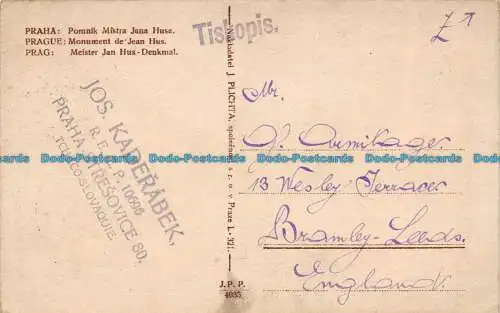 PRAHA: Pomník Mistra Jana Husa.
PRAGUE: Monument de Jean Hus.
PRAG: Meister Jan Hus-Denkmal.
Tiskopis.
JOS. KADEŘÁBEK,
R. E. P. 10696
PRAHA STŘEŠOVICE 80.
TCHÉCO-SLOVAQUIE
Nakladatel J. PLICHTA, společnost s r. o. v Praze I.- 321.
J. P. P.
4035
Mr.
Armitage
13 Wesley Terrace
Bramley-Leeds.
England.
Postcards Deals-Postcards Deals-Postcards Deals-Postcards